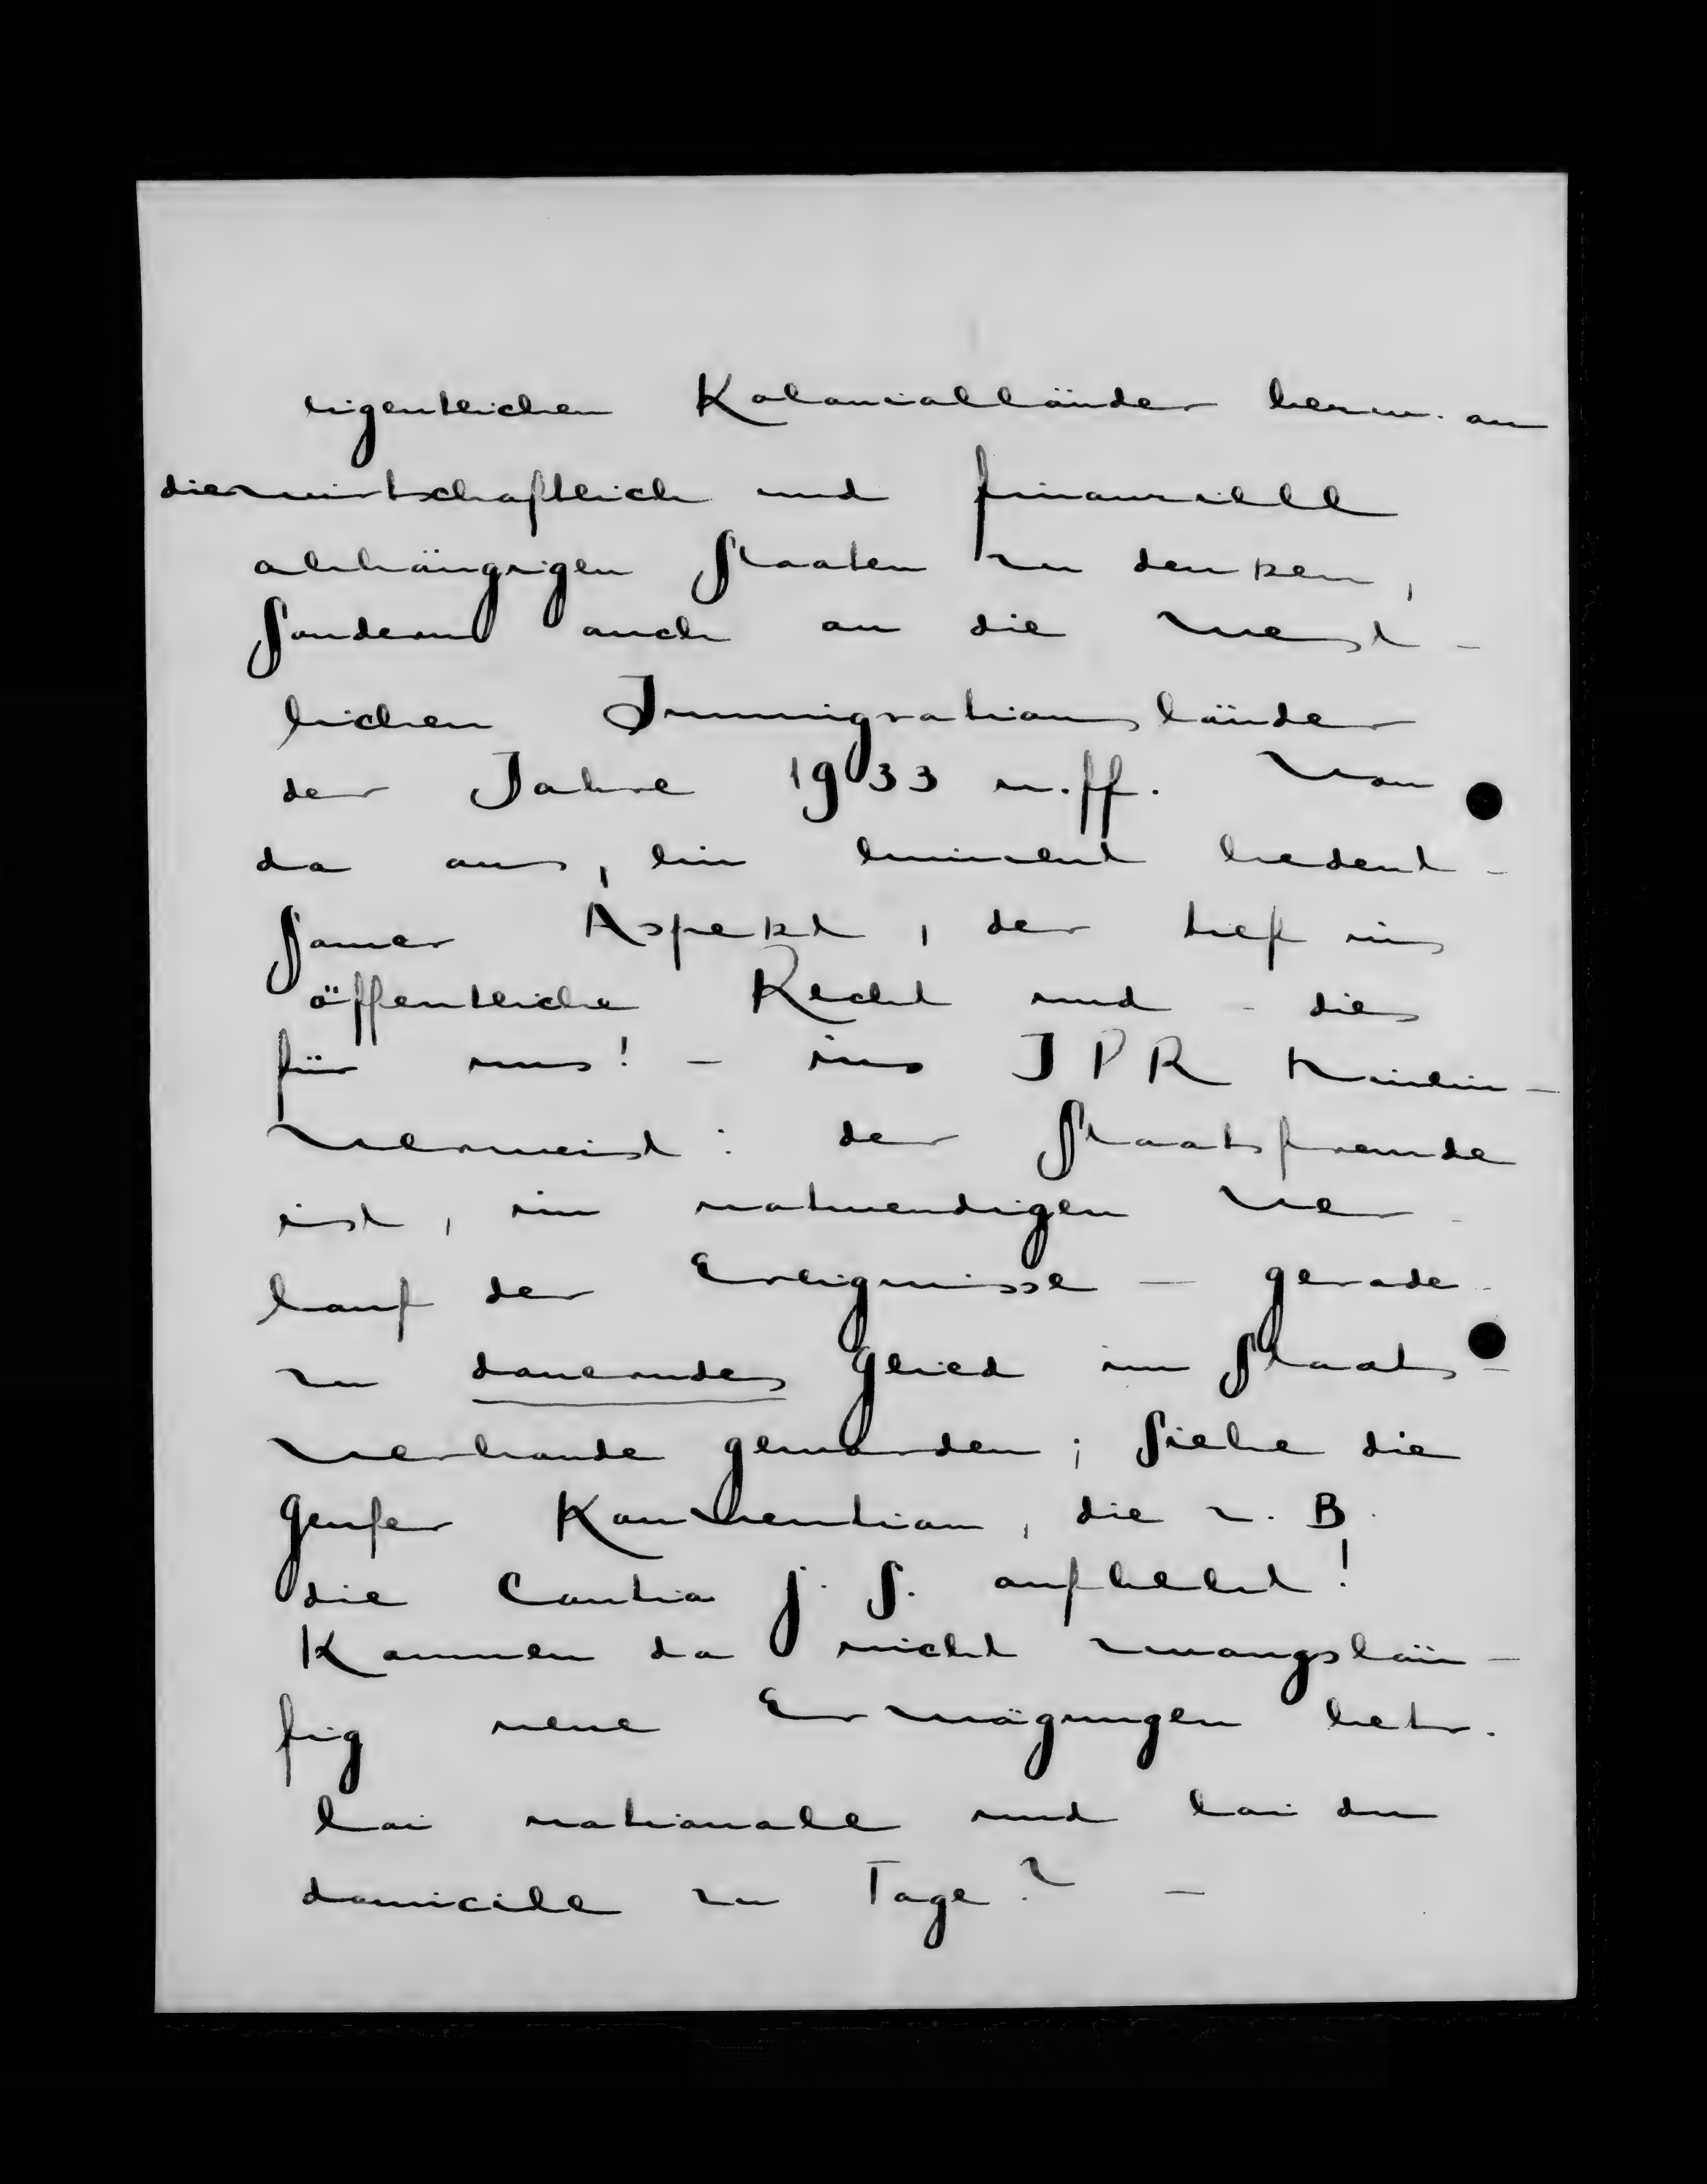 eigentlichen Kolonialländer bezw. an
die wirtschaftlich und finanziell
abhängigen Staaten zu denken,
sondern auch an die west-
lichen Immigrationsländer
der Jahre 1933 u. ff. Von
da aus, ein eminent bedeut-
samer Aspekt, der tief ins
öffentliche Recht und - dies
für uns! - ins IPR hinein-
verweist: der Staatsfremde
ist, im notwendigen Ver-
lauf der Ereignisse - gerade-
zu dauerndes Glied im Staats-
verbande geworden; siehe die
Genfer Konvention, die z. B.
die Cautio j. s. aufhebt!
Kommen da nicht zwangsläu-
fig neue Erwägungen betr.
loi nationale und loi du
domicile zu Tage? -